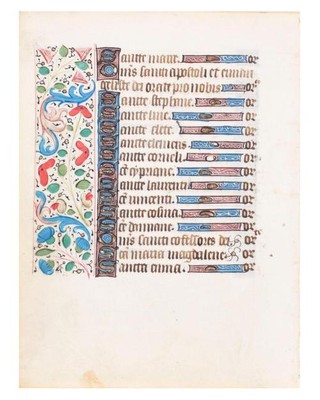 Sancte mathe. or
Omnes sancti apostoli et evan
geliste dei orate pro nobis
Sancte stephane. or
Sancte line. or
Sancte clete. or
Sancte clemens or
Sancte corneli or
Sancte cypriane. or
Sancte laurenti or
Sancte innocenti. or
Sancte cosma. or
Sancte damiane. or
Omnes sancti cōfessores dei or
Sancta maria magdalene. or
Sancta anna. or